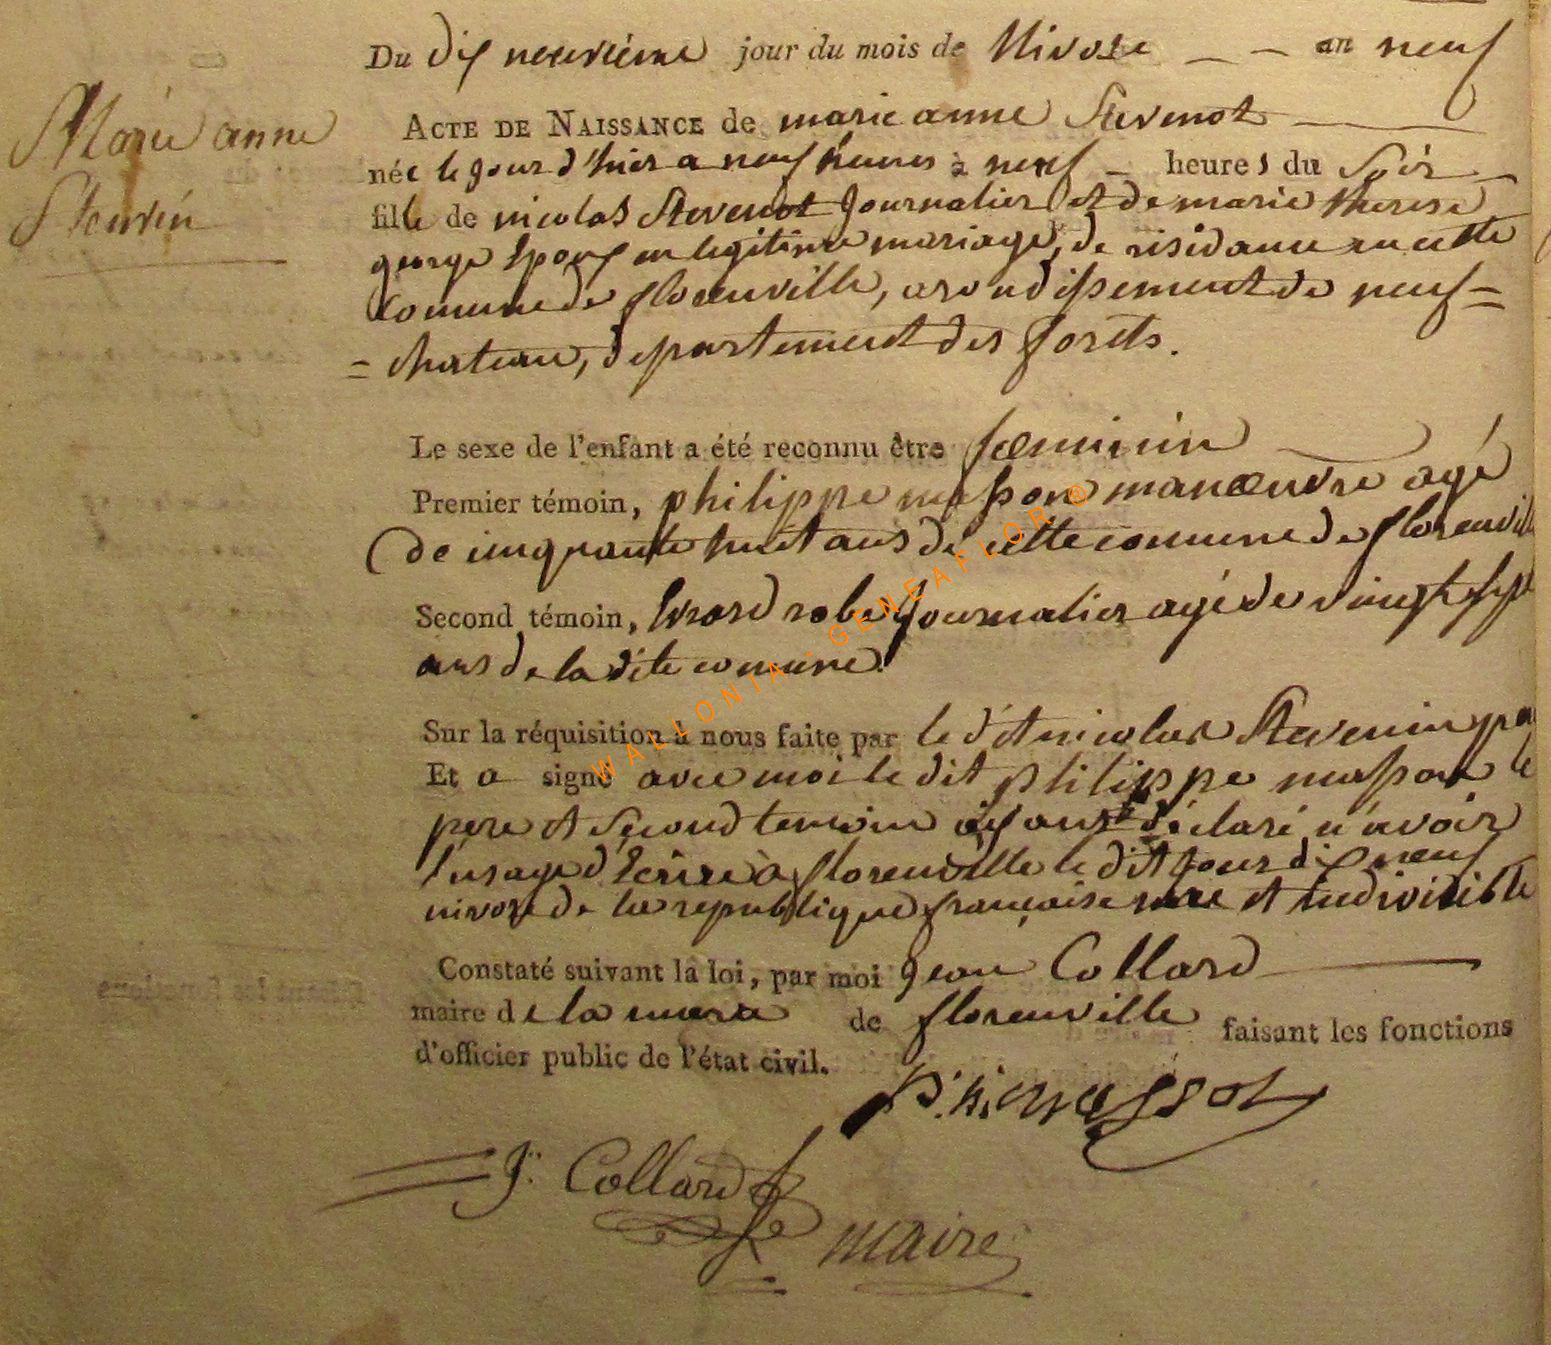 Du dix neuvieme jour du mois de Nivose — — an neuf
Marie anne
Stevnin
ACTE DE NAISSANCE de marie anne Stevenot
née le jour d'hier a neuf heures à neuf — heures du Soir
fille de nicolas Stevenot Journalier et de marie therese
george Epoux en legitime mariage, de residance en cette
Comune de florenville, arondissement de neuf=
=chateau, departement des forets.
Le sexe de l'enfant a été reconnu être fœminin
Premier témoin, philippe masson manœuvre agé
de cinquante huit ans de cette comune de florenville
Second témoin, Erard robe Journalier agé de vingt sept
ans de la dite comune.
Sur la réquisition à nous faite par le dit nicolas Stevenin
Et a signé avec moi le dit philippe masson le
pere et second temoin aïant déclaré n'avoir
l'usage d'Ecrire à florenville le dit jour dix neuf
nivose de la republique française une et indivisible
Constaté suivant la loi, par moi Jean Collard
maire de la mera de florenville faisant les fonctions
d'officier public de l'état civil.
J: Collard
maire
WALLONIA - GENEAFLOR ©